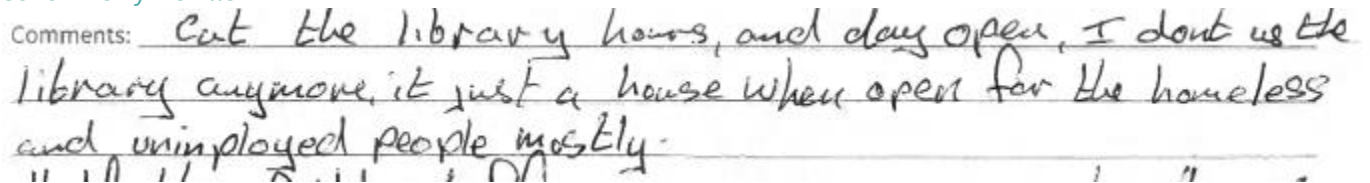 Comments: Cut the library hours, and day open, I dont us the
library anymore, it just a house when open for the homeless
and uninployed people mostly.